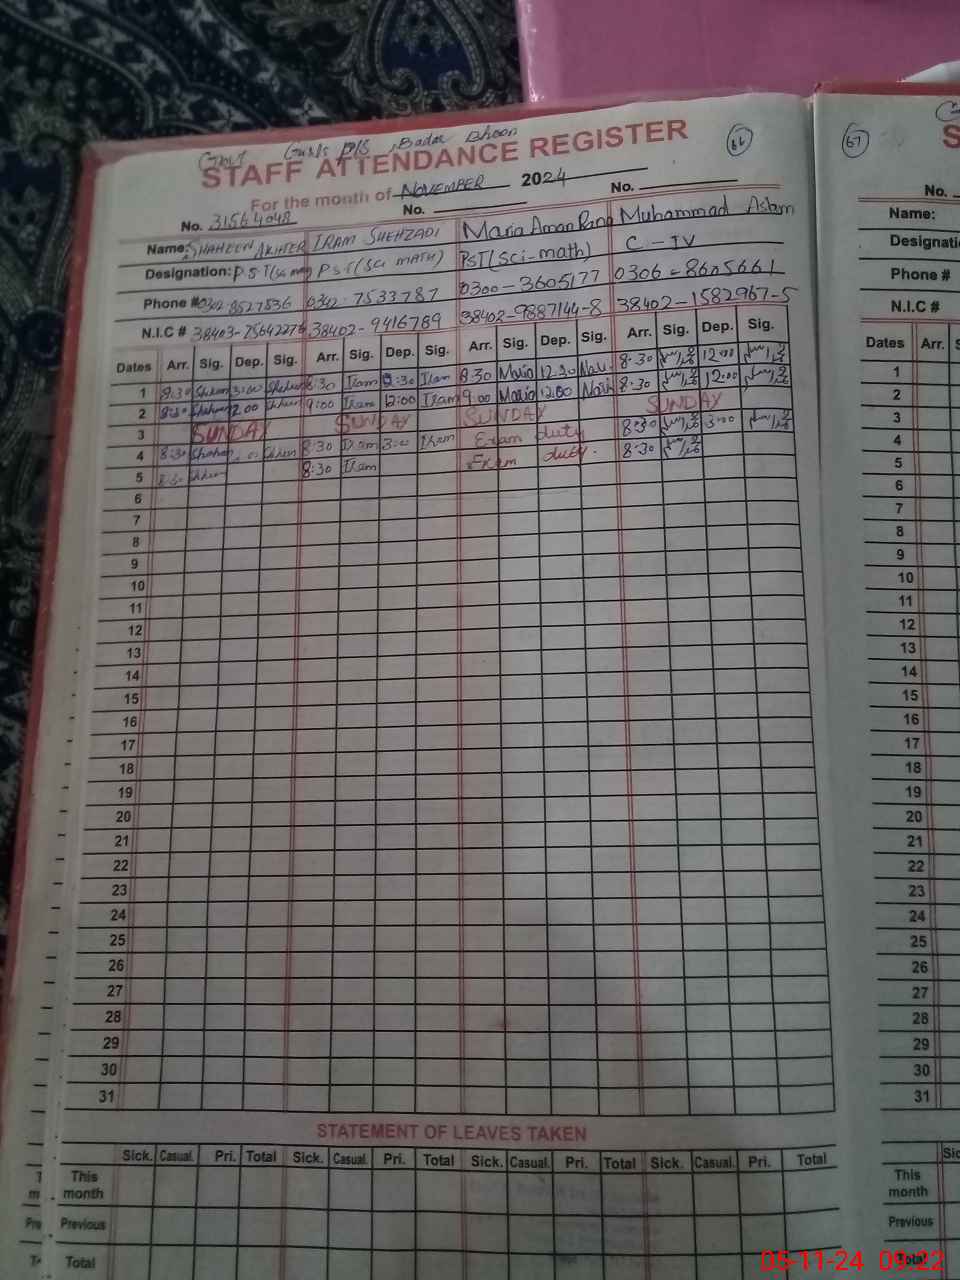 Govt Girls P/S Badar Dhoon
STAFF ATTENDANCE REGISTER
For the month of NOVEMBER 2024
No. 31564048 No. No.
Name: SHAHEEN AKHTER IRAM SHEHZADI Maria Aman Rana Muhammad Aslam
Designation: PST (Sci math) PST (SCI MATH) PST (Sci-math) C-IV
Phone # 0342-7533787 0300-3605177 0306-8605661
N.I.C # 38402-9416789 38402-9887144-8 38402-1582967-5
Dates Arr. Sig. Dep. Sig. Arr. Sig. Dep. Sig. Arr. Sig. Dep. Sig. Arr. Sig. Dep. Sig.
1 8:30 8:30 Iram Iram 8:30 Maria 12:30 8:30 12:00
2 8:30 9:00 Iram 12:00 Iram 9:00 Maria 12:00 8:30 12:00
3 SUNDAY SUNDAY SUNDAY SUNDAY
4 8:30 8:30 Iram 3:00 Iram Exam duty 8:30 3:00
5 8:30 8:30 Iram Exam duty. 8:30
6
7
8
9
10
11
12
13
14
15
16
17
18
19
20
21
22
23
24
25
26
27
28
29
30
31
STATEMENT OF LEAVES TAKEN
Sick. Casual. Pri. Total Sick. Casual. Pri. Total Sick. Casual. Pri. Total Sick. Casual. Pri. Total
This month
Previous
Total
67
No.
Name:
Designati
Phone #
N.I.C #
Dates Arr. S
1
2
3
4
5
6
7
8
9
10
11
12
13
14
15
16
17
18
19
20
21
22
23
24
25
26
27
28
29
30
31
Sic
This month
Previous
Total
05-11-24 09:22